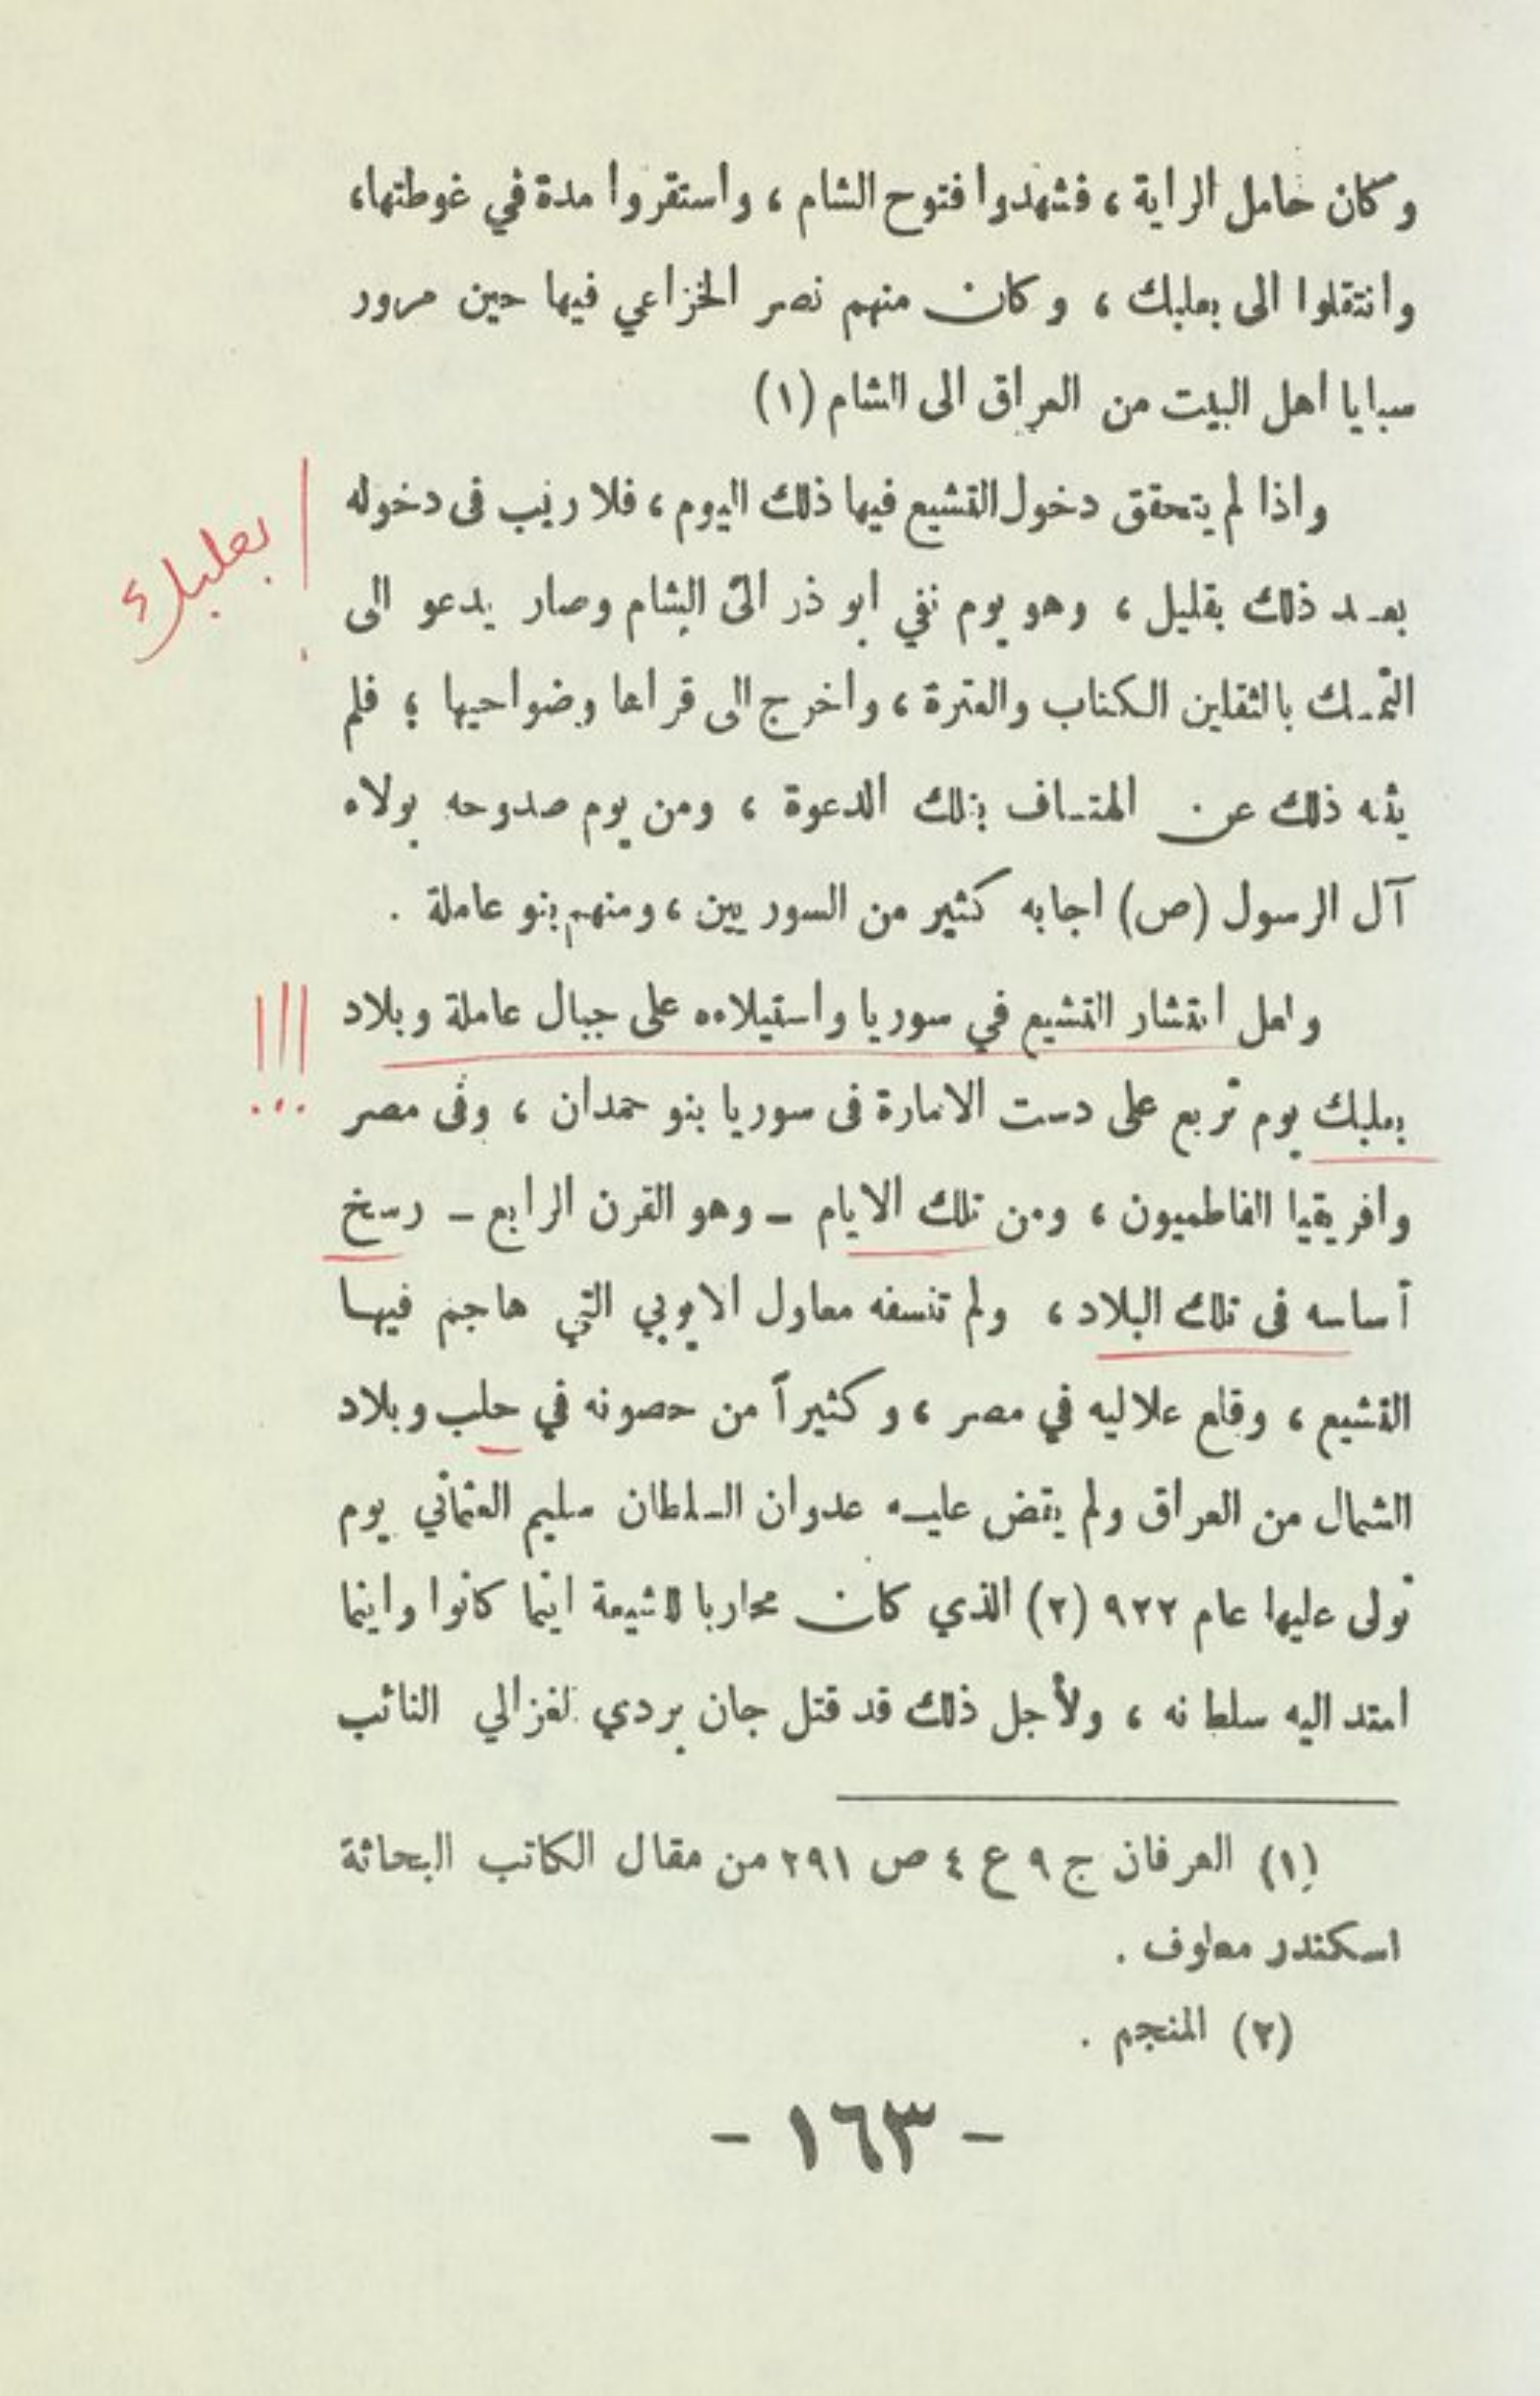 وكان حامل الراية ، فشهدوا فتوح الشام ، واستقروا مدة في غوطتها،
وانتقلوا الى بعلبك ، وكان منهم نصر الخزاعي فيها حين مرور
سبايا اهل البيت من العراق الى الشام (١)
واذا لم يتحقق دخول التشيع فيها ذلك اليوم ، فلا ريب فى دخوله
بعد ذلك بقليل ، وهو يوم نفي ابو ذر الى الشام وصار يدعو الى
التمسك بالثقلين الكتاب والعترة ، واخرج الى قراها وضواحيها ؛ فلم
يثنه ذلك عن الهتاف بتلك الدعوة ، ومن يوم صدوحه بولاء
آل الرسول (ص) اجابه كثير من السوريين ، ومنهم بنو عاملة .
بعلبك
ولعل انتشار التشيع في سوريا واستيلاءه على جبال عاملة وبلاد
!!!
بعلبك يوم تربع على دست الامارة فى سوريا بنو حمدان ، وفى مصر
وافريقيا الفاطميون ، ومن تلك الايام – وهو القرن الرابع – رسخ
أساسه فى تلك البلاد ، ولم تنسفه معاول الايوبي التي هاجم فيها
التشيع ، وقلع علاليه في مصر ، وكثيراً من حصونه في حلب وبلاد
الشمال من العراق ولم يقض عليه عدوان السلطان سليم العثماني يوم
تولى عليها عام ٩٢٢ (٢) الذي كان محاربا للشيعة اينما كانوا واينما
امتد اليه سلطانه ، ولأجل ذلك قد قتل جان بردي الغزالي النائب
(١) العرفان ج ٩ ع ٤ ص ٢٩١ من مقال الكاتب البحاثة
اسكندر معلوف .
(٢) المنجم .
- ١٦٣ -